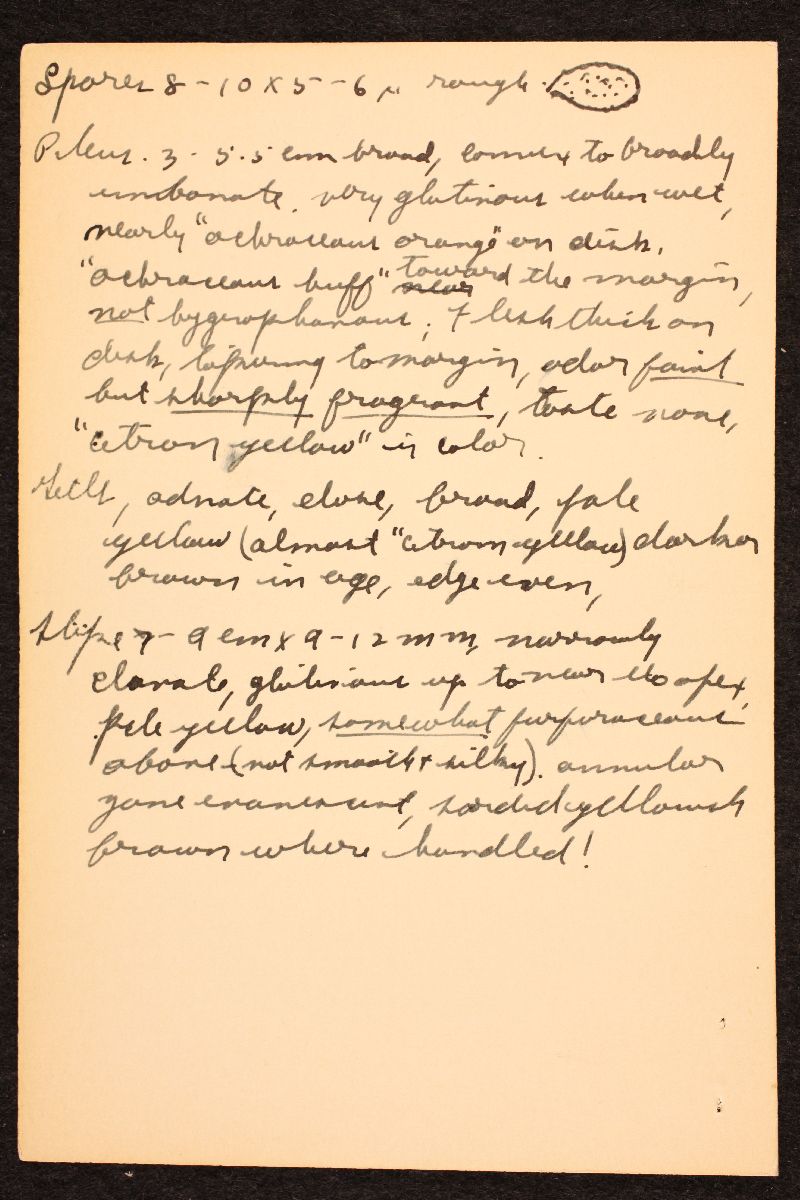 Spores 8-10 x 5-6 µ rough.
Pileus. 3-5.5 cm broad, convex to broadly
umbonate. very glutinous when wet,
nearly "ochraceous orange" on disk,
"ochraceous buff" near toward the margin,
not hygrophanous, Flesh thick on
disk, tapering to margin, odor faint
but sharply fragrant, taste none,
"citron yellow" in color.
Gills, adnate, close, broad, pale
yellow (almost "citron yellow) darker
brown in age, edge even,
Stipe 7-9 cm x 9-12 mm, narrowly
clavate, glutinous up to near the apex,
pale yellow, somewhat furfuraceous
above (not smooth + silky). annular
zone evanescent, sordid yellowish
brown where handled!